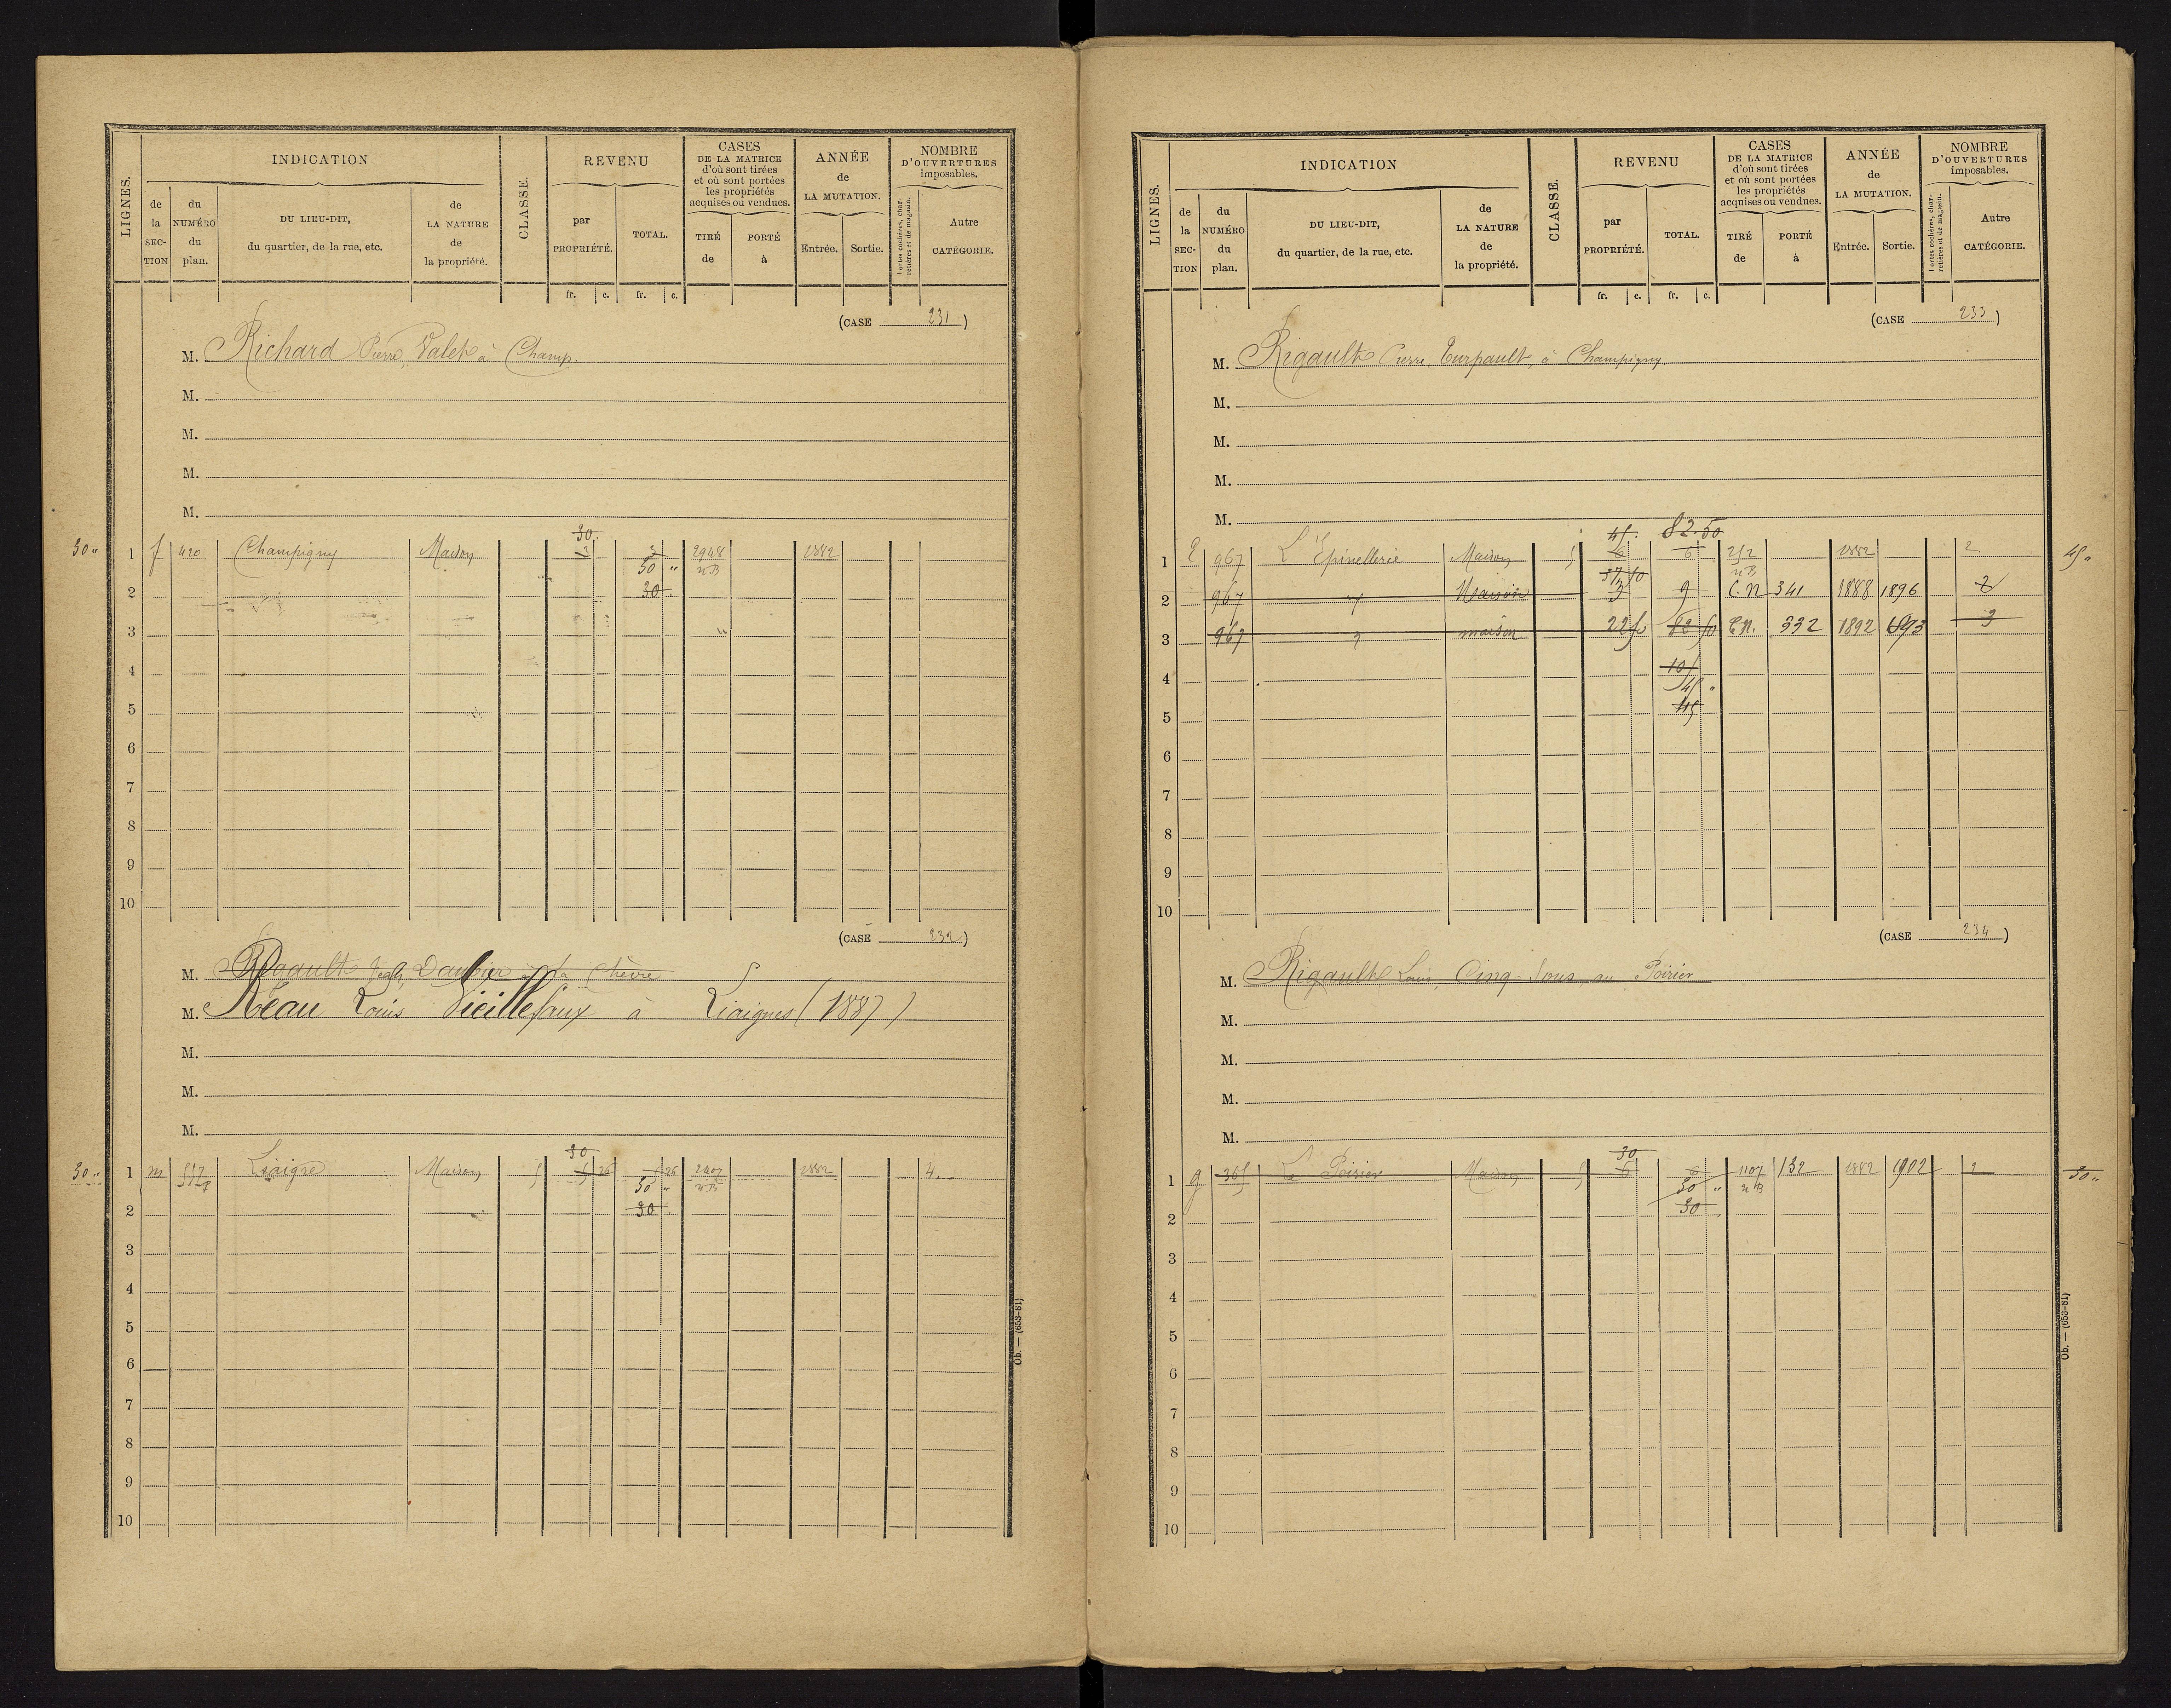 LIGNES.
INDICATION
de la SECTION
du NUMÉRO du plan.
DU LIEU-DIT, du quartier, de la rue, etc.
de LA NATURE de la propriété.
CLASSE.
REVENU
par PROPRIÉTÉ.
TOTAL.
CASES DE LA MATRICE d'où sont tirées et où sont portées les propriétés acquises ou vendues.
TIRÉ de
PORTÉ à
ANNÉE de LA MUTATION.
Entrée.
Sortie.
NOMBRE D'OUVERTURES imposables.
Portes cochères, charretières et de magasin.
Autre CATÉGORIE.
fr. c. fr. c.
(CASE 231)
M. Richard Pierre, Valet à Champ.
M.
M.
M.
M.
30
30 " 1 f 420 Champigny Maison 3 3 2948 1882
30 " nB
2 30
3
4
5
6
7
8
9
10
(CASE 232)
M. Rigault à la Chèvre
M. Réau Louis Vieillefaux à Liaigues (1887)
M.
M.
M.
30
30 " 1 m Liaigre Maison 5 5 26 5 26 2407 1882 4
30 " nB
2 30
3
4
5
6
7
8
9
10
Ob. — (653-81)
LIGNES.
INDICATION
de la SECTION
du NUMÉRO du plan.
DU LIEU-DIT, du quartier, de la rue, etc.
de LA NATURE de la propriété.
CLASSE.
REVENU
par PROPRIÉTÉ.
TOTAL.
CASES DE LA MATRICE d'où sont tirées et où sont portées les propriétés acquises ou vendues.
TIRÉ de
PORTÉ à
ANNÉE de LA MUTATION.
Entrée.
Sortie.
NOMBRE D'OUVERTURES imposables.
Portes cochères, charretières et de magasin.
Autre CATÉGORIE.
fr. c. fr. c.
(CASE 233)
M. Rigault Pierre, Turpault, à Champigny.
M.
M.
M.
M.
45. 82.50
1 967 L'Epinellerie Maison 5 6 6 252 1882 2 45 "
37 50 nB
2 967 " Maison 3 9 C.N 341 1888 1896 2
3 967 " maison 22 50 82 50 C.N. 332 1892 1893 3
4
45 "
5 45
6
7
8
9
10
(CASE 234)
M. Rigault Louis, Cinq-Sous, au Poirier
M.
M.
M.
M.
30
1 g 365 Le Poirier Maison 5 6 6 1107 132 1882 1902 2 30 "
30 " nB
2 30
3
4
5
6
7
8
9
10
Ob. — (653-81)